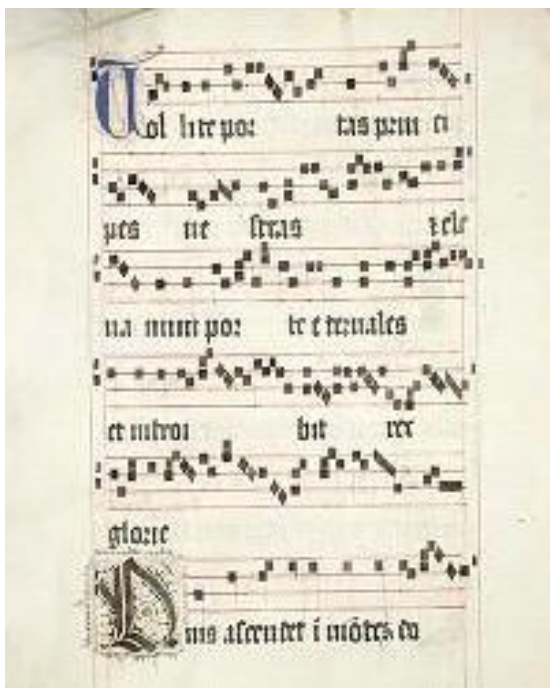 Tol lite por tas prin ci
pes ue stras z ele
ua mini por te e ternales
et introi bit rex
glorie
Quis ascendet i mōtez do